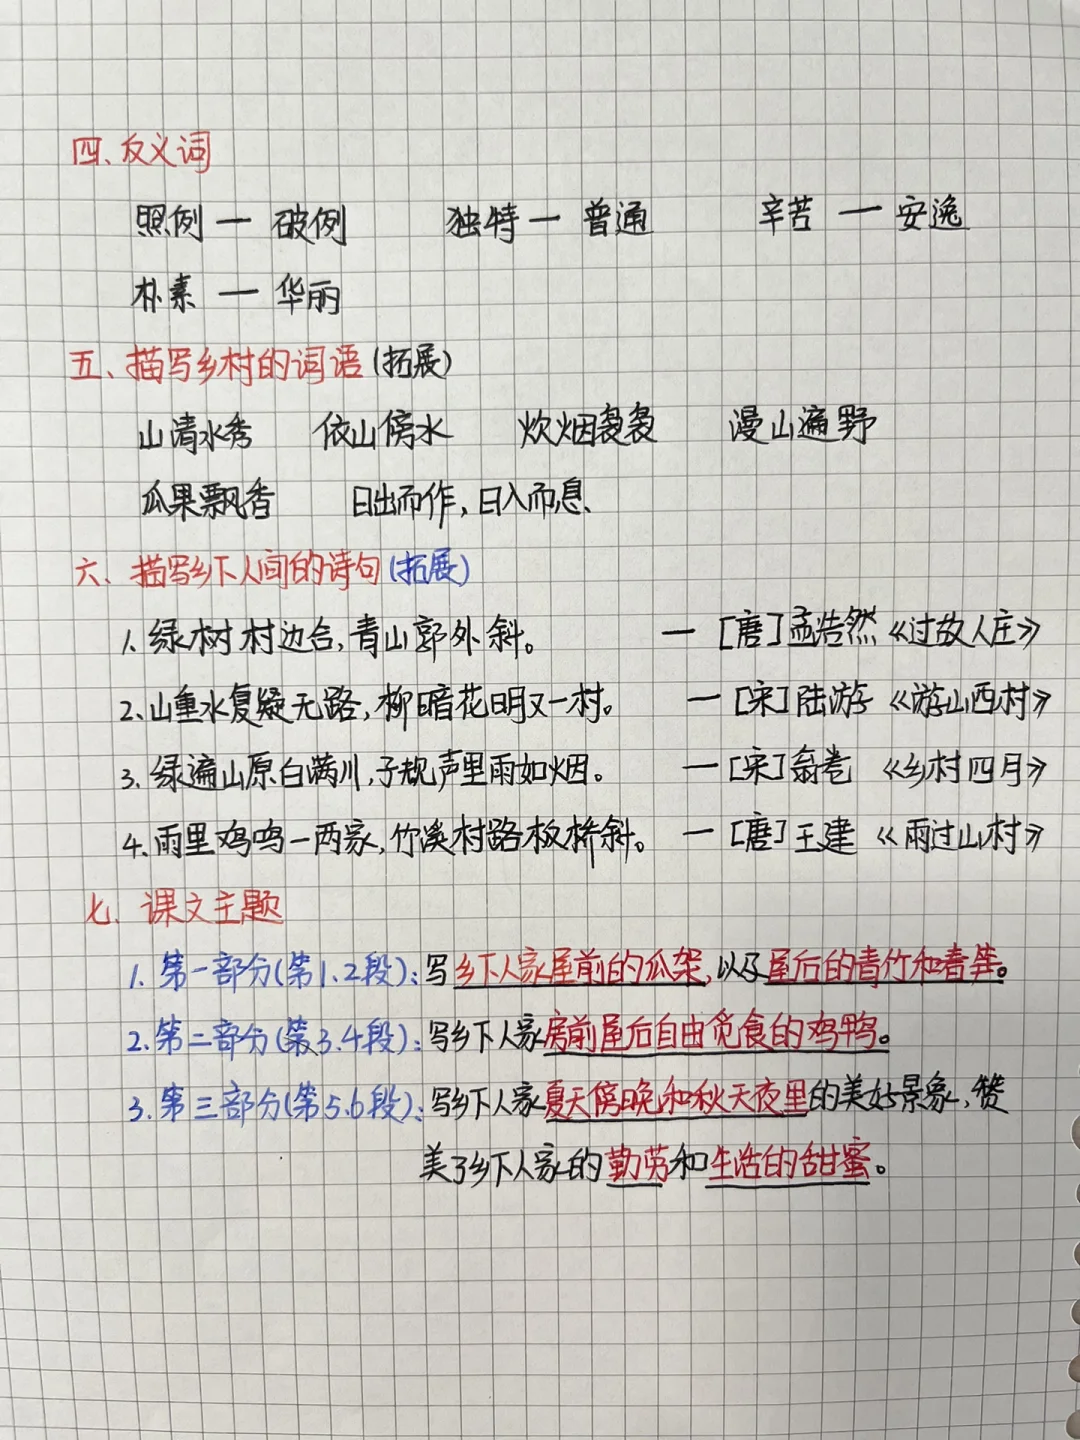 四、反义词
照例 — 破例 独特 — 普通 辛苦 — 安逸
朴素 — 华丽
五、描写乡村的词语(拓展)
山清水秀 依山傍水 炊烟袅袅 漫山遍野
瓜果飘香 日出而作,日入而息、
六、描写乡下人间的诗句(拓展)
1. 绿树村边合,青山郭外斜。 — [唐]孟浩然《过故人庄》
2. 山重水复疑无路,柳暗花明又一村。 — [宋]陆游《游山西村》
3. 绿遍山原白满川,子规声里雨如烟。 — [宋]翁卷《乡村四月》
4. 雨里鸡鸣一两家,竹溪村路板桥斜。 — [唐]王建《雨过山村》
七、课文主题
1. 第一部分(第1、2段):写乡下人家屋前的瓜架,以及屋后的青竹和春笋。
2. 第二部分(第3.4段):写乡下人家房前屋后自由觅食的鸡鸭。
3. 第三部分(第5.6段):写乡下人家夏天傍晚和秋天夜里的美好景象,赞
美了乡下人家的勤劳和生活的甜蜜。